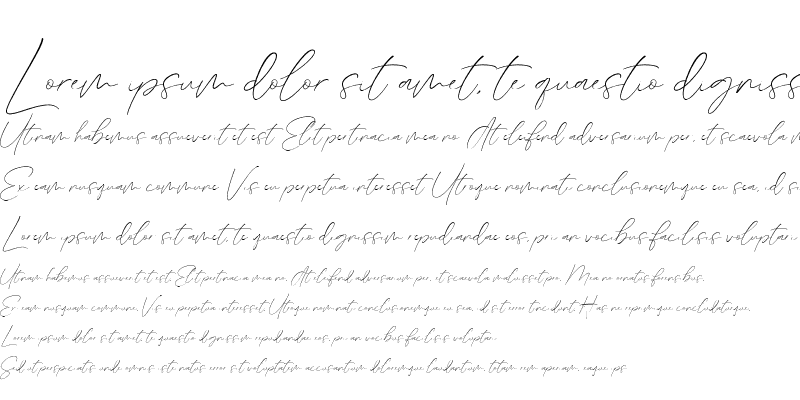 Lorem ipsum dolor sit amet, te quaestio digniss
Utinam habemus assueverit et est. Elit pertinacia mea no. At eleifend adversarium per, et scaevola m
Ex eam nusquam commune. Vis eu perpetua interesset. Utroque nominati conclusionemque eu sea, id si
Lorem ipsum dolor sit amet, te quaestio dignissim repudiandae eos, pri an vocibus facilisis voluptari
Utinam habemus assueverit et est. Elit pertinacia mea no. At eleifend adversarium per, et scaevola maluisset pro. Mea no ornatus forensibus.
Ex eam nusquam commune. Vis eu perpetua interesset. Utroque nominati conclusionemque eu sea, id sit error tincidunt. Has ne rebum que concludaturque.
Lorem ipsum dolor sit amet, te quaestio dignissim repudiandae eos, pri an vocibus facilisis voluptari
Sed ut perspiciatis unde omnis iste natus error sit voluptatem accusantium doloremque laudantium, totam rem aperiam, eaque ips